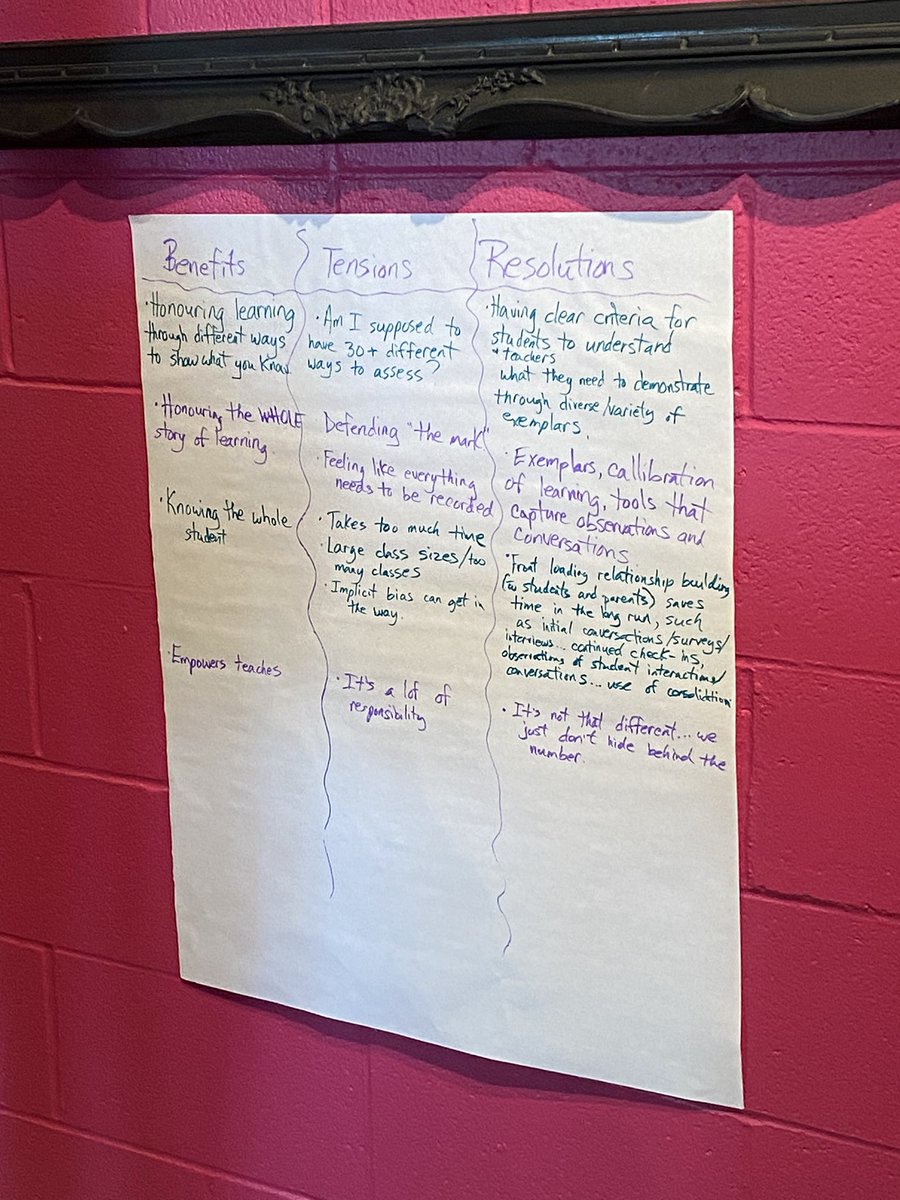 Benefits
·Honouring learning
through different ways
to show what you know
·Honouring the WHOLE
story of learning
·Knowing the whole
student
·Empowers teaches
Tensions
·Am I supposed to
have 30+ different
ways to assess?
Defending "the mark"
·Feeling like everything
needs to be recorded
·Takes too much time
·Large class sizes/too
many classes
·Implicit bias can get in
the way.
·It's a lot of
responsibility
Resolutions
·Having clear criteria for
students to understand
+ teachers
what they need to demonstrate
through diverse/variety of
exemplars.
·Exemplars, callibration
of learning, tools that
capture observations and
conversations
·Front loading relationship building
(w students and parents) saves
time in the long run, such
as initial conversations/surveys/
interviews... continued check-ins,
observations of student interactions/
conversations... use of
·It's not that different... we
just don't hide behind the
number.